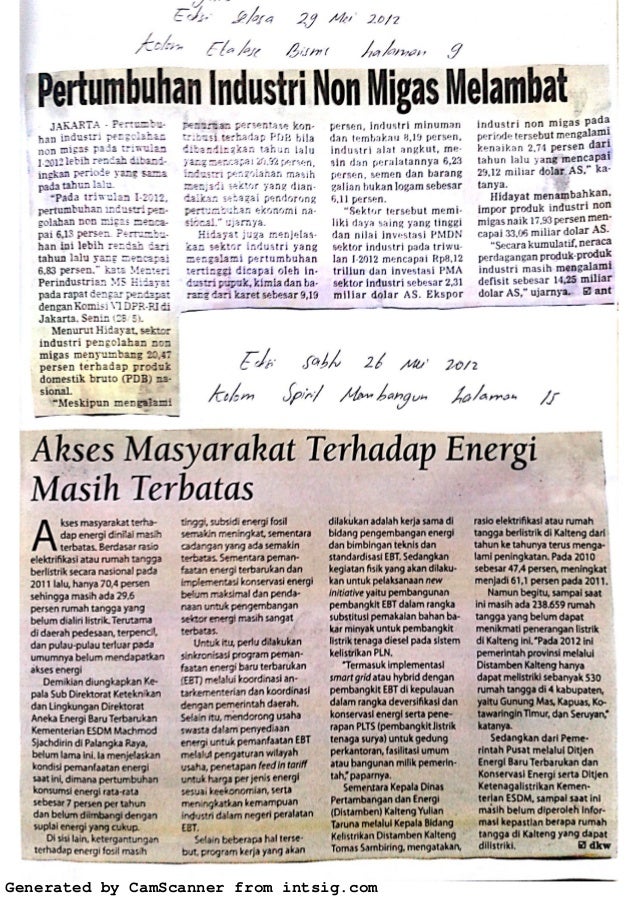 Edisi Selasa 29 Mei 2012
Kolom Etalase Bisnis halaman 9
Pertumbuhan Industri Non Migas Melambat
JAKARTA - Pertumbu-
han industri pengolahan
non migas pada triwulan
I-2012 lebih rendah diband-
ingkan periode yang sama
pada tahun lalu.
"Pada triwulan I-2012,
pertumbuhan industri pen-
golahan non migas menca-
pai 6,13 persen. Pertumbu-
han ini lebih rendah dari
tahun lalu yang mencapai
6,83 persen," kata Menteri
Perindustrian MS Hidayat
pada rapat dengar pendapat
dengan Komisi VI DPR-RI di
Jakarta, Senin (28/5).
Menurut Hidayat, sektor
industri pengolahan non
migas menyumbang 20,47
persen terhadap produk
domestik bruto (PDB) na-
sional.
"Meskipun mengalami
penurunan persentase kon-
tribusi terhadap PDB bila
dibandingkan tahun lalu
yang mencapai 20,92 persen,
industri pengolahan masih
menjadi sektor yang dian-
dalkan sebagai pendorong
pertumbuhan ekonomi na-
sional," ujarnya.
Hidayat juga menjelas-
kan sektor industri yang
mengalami pertumbuhan
tertinggi dicapai oleh in-
dustri pupuk, kimia dan ba-
rang dari karet sebesar 9,19
persen, industri minuman
dan tembakau 8,19 persen,
industri alat angkut, me-
sin dan peralatannya 6,23
persen, semen dan barang
galian bukan logam sebesar
6,11 persen.
"Sektor tersebut memi-
liki daya saing yang tinggi
dan nilai investasi PMDN
sektor industri pada triwu-
lan I-2012 mencapai Rp8,12
triliun dan investasi PMA
sektor industri sebesar 2,31
miliar dolar AS. Ekspor
industri non migas pada
periode tersebut mengalami
kenaikan 2,74 persen dari
tahun lalu yang mencapai
29,12 miliar dolar AS," ka-
tanya.
Hidayat menambahkan,
impor produk industri non
migas naik 17,93 persen men-
capai 33,06 miliar dolar AS.
"Secara kumulatif, neraca
perdagangan produk-produk
industri masih mengalami
defisit sebesar 14,25 miliar
dolar AS," ujarnya. ant
Edisi Sabtu 26 Mei 2012
Kolom Spirit Membangun halaman 15
Akses Masyarakat Terhadap Energi
Masih Terbatas
Akses masyarakat terha-
dap energi dinilai masih
terbatas. Berdasar rasio
elektrifikasi atau rumah tangga
berlistrik secara nasional pada
2011 lalu, hanya 70,4 persen
sehingga masih ada 29,6
persen rumah tangga yang
belum dialiri listrik. Terutama
di daerah pedesaan, terpencil,
dan pulau-pulau terluar pada
umumnya belum mendapatkan
akses energi
Demikian diungkapkan Ke-
pala Sub Direktorat Keteknikan
dan Lingkungan Direktorat
Aneka Energi Baru Terbarukan
Kementerian ESDM Machmod
Sjachdirin di Palangka Raya,
belum lama ini. Ia menjelaskan
kondisi pemanfaatan energi
saat ini, dimana pertumbuhan
konsumsi energi rata-rata
sebesar 7 persen per tahun
dan belum diimbangi dengan
suplai energi yang cukup.
Di sisi lain, ketergantungan
terhadap energi fosil masih
tinggi, subsidi energi fosil
semakin meningkat, sementara
cadangan yang ada semakin
terbatas. Sementara peman-
faatan energi terbarukan dan
implementasi konservasi energi
belum maksimal dan penda-
naan untuk pengembangan
sektor energi masih sangat
terbatas.
Untuk itu, perlu dilakukan
sinkronisasi program peman-
faatan energi baru terbarukan
(EBT) melalui koordinasi an-
tarkementerian dan koordinasi
dengan pemerintah daerah.
Selain itu, mendorong usaha
swasta dalam penyediaan
energi untuk pemanfaatan EBT
melalui pengaturan wilayah
usaha, penetapan feed in tariff
untuk harga per jenis energi
sesuai keekonomian, serta
meningkatkan kemampuan
industri dalam negeri peralatan
EBT.
Selain beberapa hal terse-
but, program kerja yang akan
dilakukan adalah kerja sama di
bidang pengembangan energi
dan bimbingan teknis dan
standardisasi EBT. Sedangkan
kegiatan fisik yang akan dilaku-
kan untuk pelaksanaan new
initiative yaitu pembangunan
pembangkit EBT dalam rangka
substitusi pemakaian bahan ba-
kar minyak untuk pembangkit
listrik tenaga diesel pada sistem
kelistrikan PLN.
"Termasuk implementasi
smart grid atau hybrid dengan
pembangkit EBT di kepulauan
dalam rangka deversifikasi dan
konservasi energi serta pene-
rapan PLTS (pembangkit listrik
tenaga surya) untuk gedung
perkantoran, fasilitas umum
atau bangunan milik pemerin-
tah," paparnya.
Sementara Kepala Dinas
Pertambangan dan Energi
(Distamben) Kalteng Yulian
Taruna melalui Kepala Bidang
Kelistrikan Distamben Kalteng
Tomas Sambiring, mengatakan,
rasio elektrifikasi atau rumah
tangga berlistrik di Kalteng dari
tahun ke tahunya terus menga-
lami peningkatan. Pada 2010
sebesar 47,4 persen, meningkat
menjadi 61,1 persen pada 2011.
Namun begitu, sampai saat
ini masih ada 238.659 rumah
tangga yang belum dapat
menikmati penerangan listrik
di Kalteng ini. "Pada 2012 ini
pemerintah provinsi melalui
Distamben Kalteng hanya
dapat melistriki sebanyak 530
rumah tangga di 4 kabupaten,
yaitu Gunung Mas, Kapuas, Ko-
tawaringin Timur, dan Seruyan,"
katanya.
Sedangkan dari Peme-
rintah Pusat melalui Ditjen
Energi Baru Terbarukan dan
Konservasi Energi serta Ditjen
Ketenagalistrikan Kemen-
terian ESDM, sampai saat ini
masih belum diperoleh infor-
masi kepastian berapa rumah
tangga di Kalteng yang dapat
dilistriki. dkw
Generated by CamScanner from intsig.com